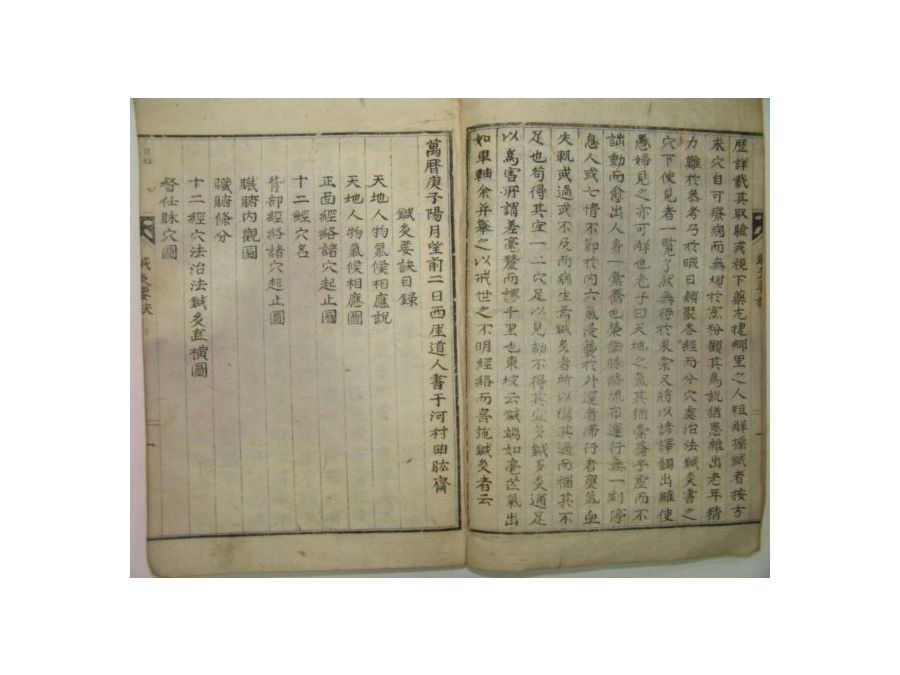 歷詳載其取驗或視下藥尤捷鄕里之人粗解操鍼者按方
來穴自可療病而無煩於京粉顧其爲說猶患雜出老年精
力難於叅考乃於暇日類聚各經而分穴處治法鍼灸書之
穴下使見者一覽了然無待於釆索又將以諺譯謄出雖使
愚婦見之亦可解也老子曰天地之氣其猶橐籥乎虛而不
詘動而愈出人身一橐籥也榮衛脉絡流布運行無一刻停
息人或七情不節於內六氣浸襲於外運者滯行者壅氣血
失軌或過或不及而病生焉鍼灸者所以傷其過而補其不
足也苟得其宜一二穴足以見効不得其宜多鍼多灸適足
以爲害所謂差毫釐而謬千里也東坡云鍼端如毫芒氣出
如車軸余并纂之以戒世之不明經絡而魯施鍼灸者云
萬曆庚子陽月望前二日西厓道人書于河村曲肱齋
鍼灸要訣目錄
天地人物氣候相應說
天地人物氣候相應圖
正面經絡諸穴起止圖
背部經絡諸穴起止圖
十二經穴名
臟腑內觀圖
臟腑條分
十二經穴法治法鍼灸直橫圖
督任脉穴圖
鍼灸要訣
一